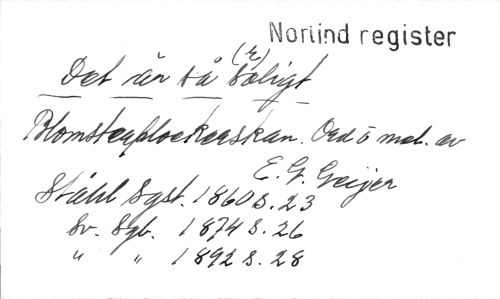 Norlind register
(r)
Det är så soligt
Blomsterplockerskan. Ord o mel. av
E. G. Geijer
Ståhl Sgst. 1860 s. 23
Sv. Sgb. 1874 s. 26
" " 1892 s. 28